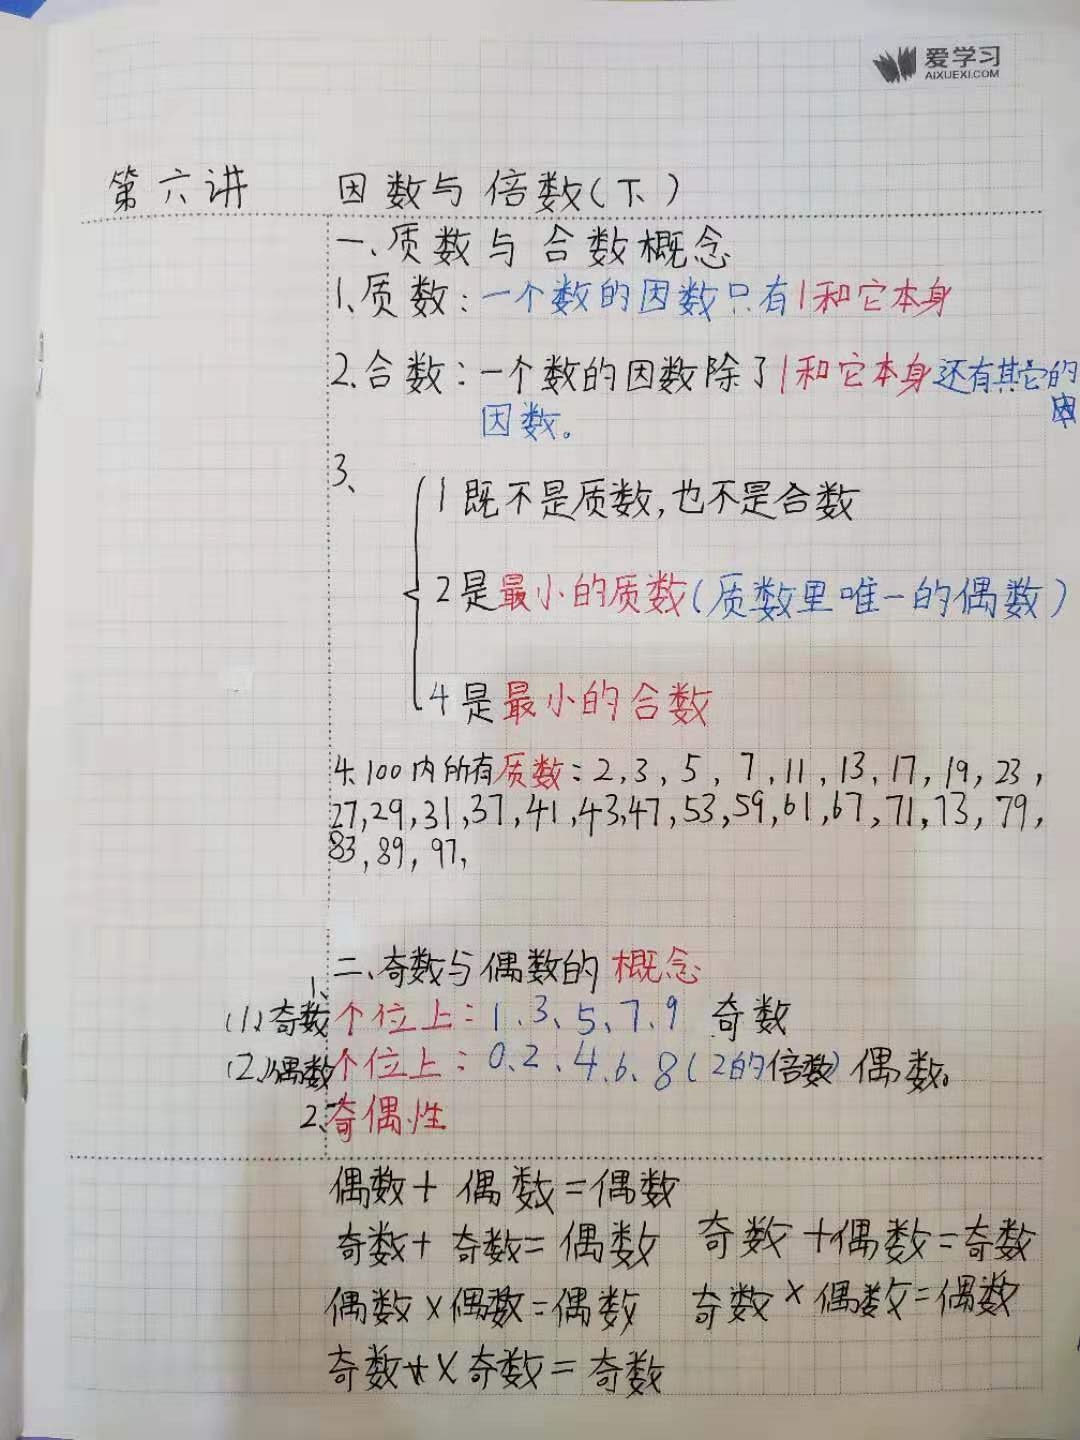 爱学习
AIXUEXI.COM
第六讲 因数与倍数(下)
一、质数与合数概念
1、质数：一个数的因数只有1和它本身
2、合数：一个数的因数除了1和它本身还有其它的
因数。
3、
1既不是质数,也不是合数
2是最小的质数(质数里唯一的偶数)
4是最小的合数
4、100内所有质数：2,3,5,7,11,13,17,19,23,
27,29,31,37,41,43,47,53,59,61,67,71,73,79,
83,89,97,
二、奇数与偶数的概念
1、
(1)、奇数个位上：1、3、5、7、9 奇数
(2)、偶数个位上：0、2、4、6、8(2的倍数)偶数。
2、奇偶性
偶数+偶数=偶数
奇数+奇数=偶数 奇数+偶数=奇数
偶数×偶数=偶数 奇数×偶数=偶数
奇数×奇数=奇数